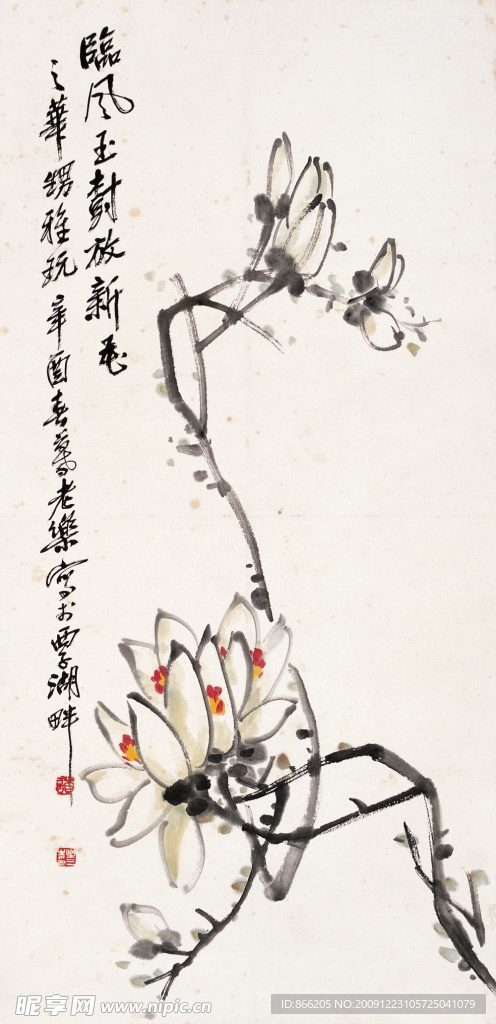 臨風玉樹放新花
之華甥雅玩 辛酉春暮老樂寫於西子湖畔
昵享网 www.nipic.cn
ID:866205 NO:20091223105725041079